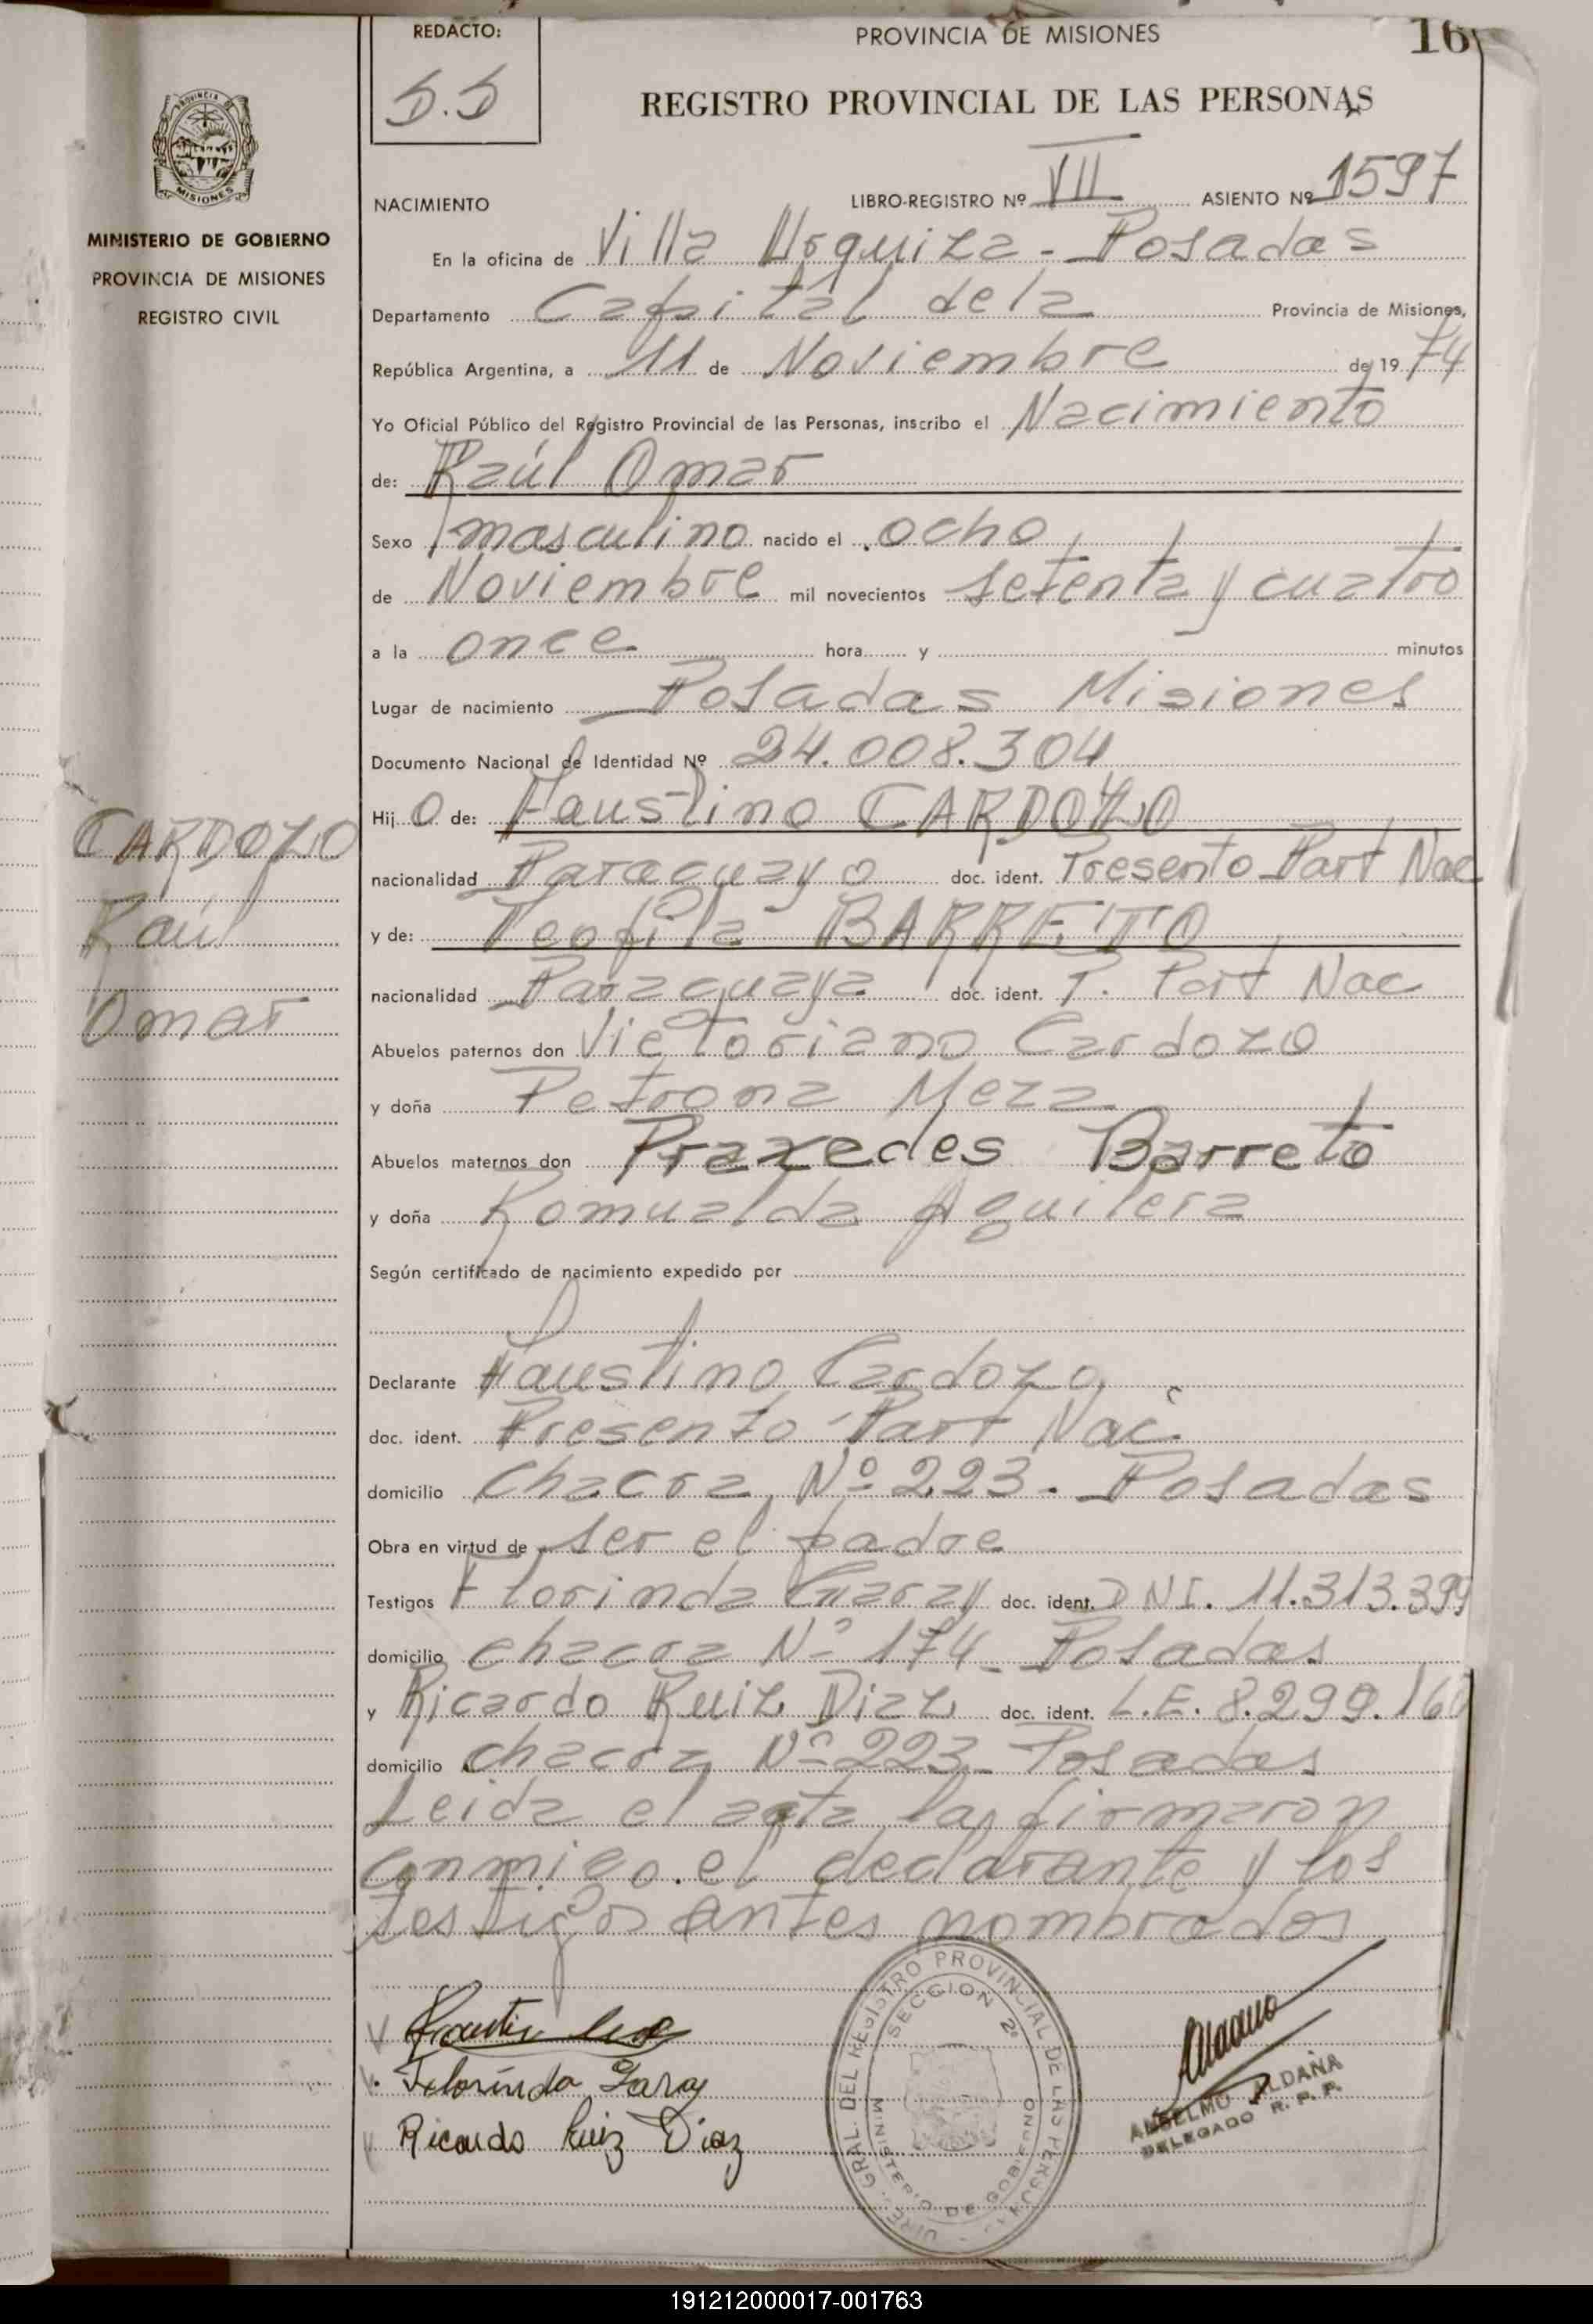 REDACTO:
S.S
PROVINCIA DE MISIONES
16
REGISTRO PROVINCIAL DE LAS PERSONAS
PROVINCIA DE
MISIONES
MINISTERIO DE GOBIERNO
PROVINCIA DE MISIONES
REGISTRO CIVIL
NACIMIENTO LIBRO-REGISTRO Nº VII ASIENTO Nº 1597
En la oficina de Villa Urquiza - Posadas
Departamento Capital de la Provincia de Misiones,
República Argentina, a 11 de Noviembre de 1974
Yo Oficial Público del Registro Provincial de las Personas, inscribo el Nacimiento
de: Raúl Omar
Sexo masculino nacido el ocho
de Noviembre mil novecientos setenta y cuatro
a la once hora y minutos
Lugar de nacimiento Posadas Misiones
Documento Nacional de Identidad Nº 24.008.304
Hijo de: Faustino CARDOZO
nacionalidad Paraguayo doc. ident. Presento Part Nac
y de: Teofila BARRETO
nacionalidad Paraguaya doc. ident. P. Part Nac
Abuelos paternos don Victoriano Cardozo
y doña Petrona Meza
Abuelos maternos don Praxedes Barreto
y doña Romualda Aguilera
Según certificado de nacimiento expedido por
Declarante Faustino Cardozo
doc. ident. Presento Part Nac.
domicilio chacra Nº 223 - Posadas
Obra en virtud de ser el padre
Testigos Florinda Garay doc. ident. DNI. 11.313.399
domicilio chacra Nº 174 - Posadas
y Ricardo Ruiz Diaz doc. ident. L.E. 8.299.160
domicilio chacra Nº 223 - Posadas
Leida el acta la firmaron
conmigo el declarante y los
testigos antes nombrados
CARDOZO
Raúl
Omar
Florinda Garay
Ricardo Ruiz Diaz
GRAL. DEL REGISTRO PROVINCIAL DE LAS PERSONAS
SECCION 2º
MINISTERIO DE GOBIERNO
ANSELMO ALDAÑA
DELEGADO R. P. P.
191212000017-001763